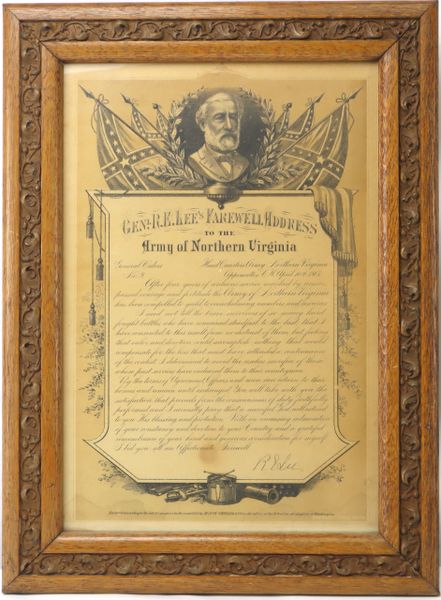 GENL R.E. LEE'S FAREWELL ADDRESS
TO THE
Army of Northern Virginia
General Orders Head Quarters Army Northern Virginia
No. 9 Appomattox C.H. April 10th
After four years of arduous service marked by
courage and fortitude the Army of Northern Virginia
has been compelled to yield to numbers and
I need not tell the brave survivors of so many hard
fought battles who have remained steadfast to the last that I
have consented to the result from no distrust of them
that valor and devotion could accomplish nothing that would
compensate for the loss that must have attended a continuance
of the contest I determined to avoid the useless sacrifice of those
whose past services have endeared them to their countrymen.
By the terms of Agreement Officers and men can return to their
homes and remain until exchanged You will take with you the
satisfaction that proceeds from the consciousness of duty faithfully
performed and I earnestly pray that a merciful God will extend
to you His blessing and protection With an
of your constancy and devotion to your Country and a grateful
remembrance of your kind and generous consideration for myself
I bid you all an Affectionate Farewell
R E Lee